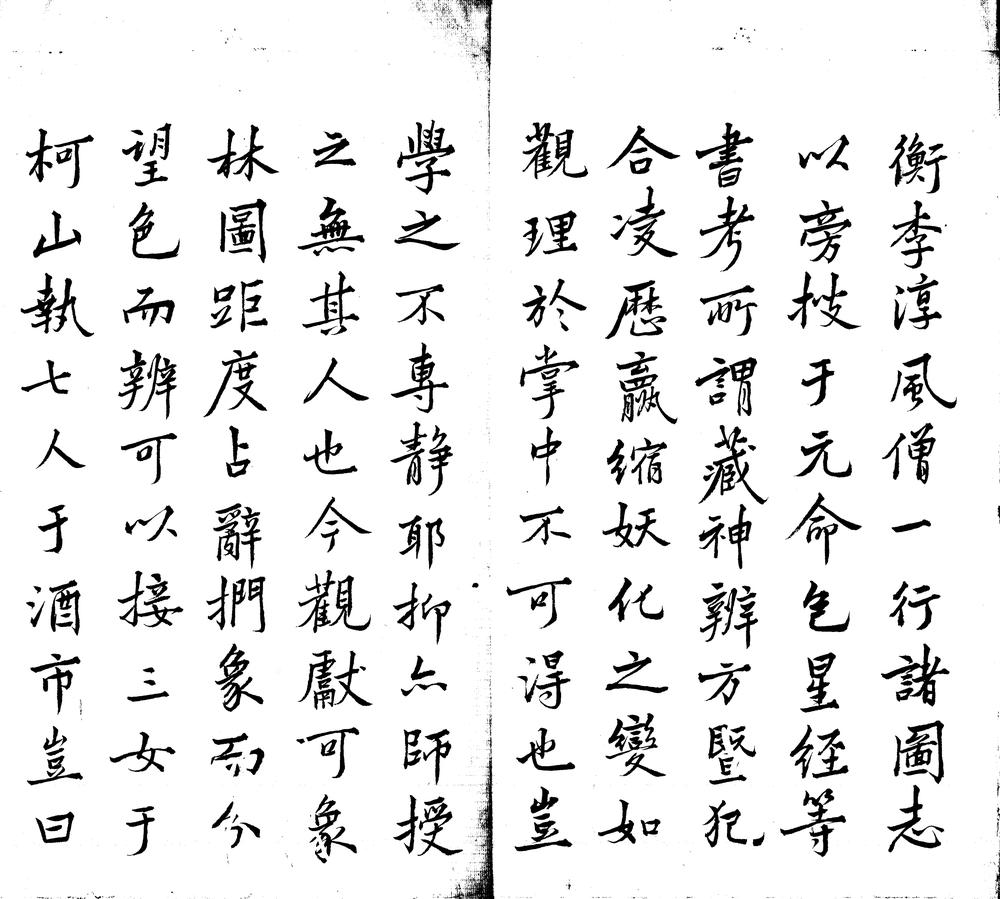 衡李淳風僧一行諸圖志
以旁搜于元命包星經等
書考所謂藏神辨方暨犯
合凌歷贏縮妖化之變如
觀理於掌中不可得也豈
學之不專靜耶抑亦師授
之無其人也今觀獻可象
林圖距度占辭捫象而今
望色而辨可以接三女于
柯山執七人于酒市豈曰